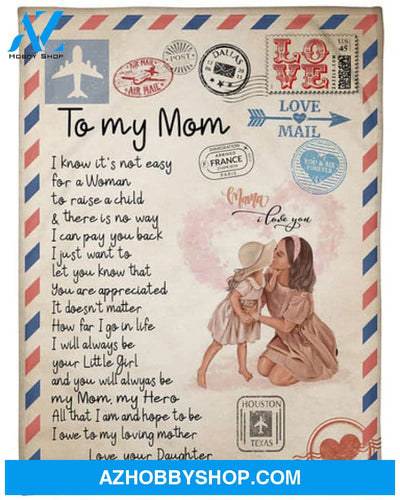 AZ
HOBBY SHOP
AIR MAIL
AIR MAIL
POST
DALLAS
U.S.
45
LOVE
To my Mom
LOVE
MAIL
IMMIGRATION
ARRIVED
FRANCE
PARIS
YOU & AIR
FOREVER
I know it's not easy
for a Woman
to raise a child
& there is no way
I can pay you back
I just want to
let you know that
You are appreciated
It doesn't matter
How far I go in life
I will always be
your Little Girl
and you will alwyas be
my Mom, my Hero
All that I am and hope to be
I owe to my loving mother
Love, your Daughter
Mama
i love you
HOUSTON
TEXAS
AZHOBBYSHOP.COM